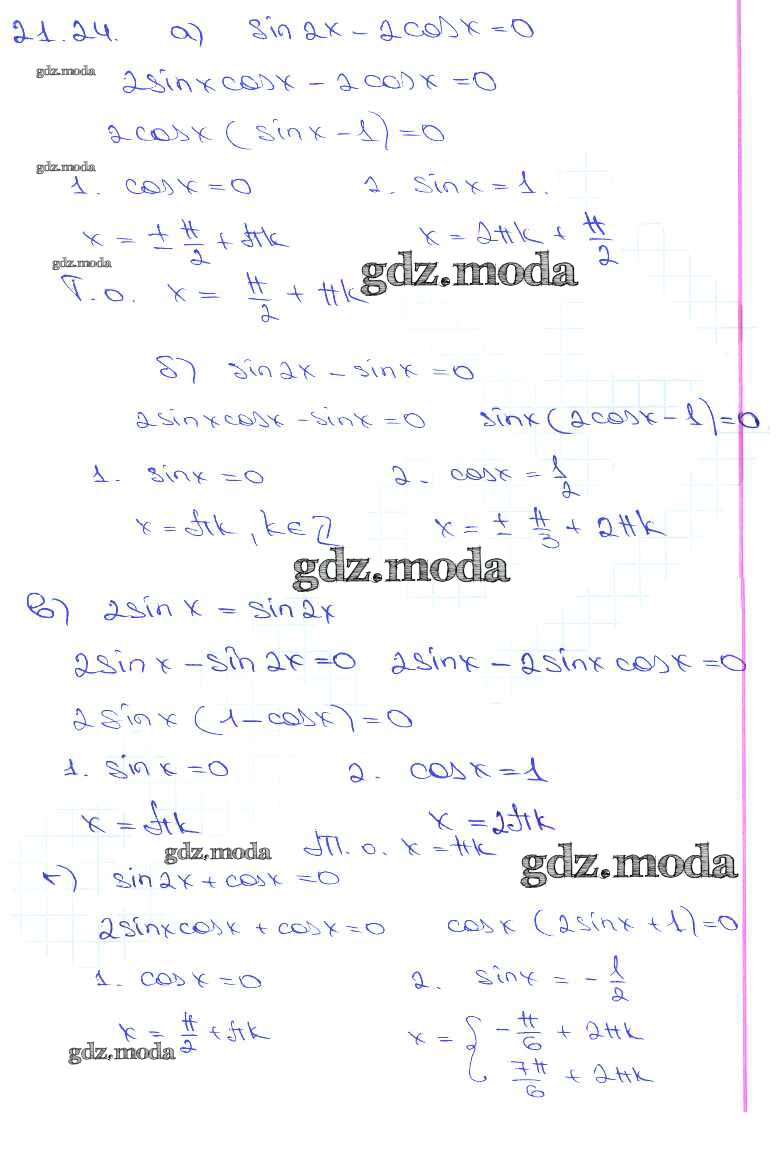 21.24. а) sin2x - 2cosx = 0
gdz.moda
2sinxcosx - 2cosx = 0
2cosx(sinx - 1) = 0
gdz.moda
1. cosx = 0 2. sinx = 1.
x = ± π/2 + πk x = 2πk + π/2
gdz.moda
Т.о. x = π/2 + πk gdz.moda
б) sin2x - sinx = 0
2sinxcosx - sinx = 0 sinx(2cosx - 1) = 0
1. sinx = 0 2. cosx = 1/2
x = πk, k ∈ Z x = ± π/3 + 2πk
gdz.moda
в) 2sinx = sin2x
2sinx - sin2x = 0 2sinx - 2sinxcosx = 0
2sinx(1 - cosx) = 0
1. sinx = 0 2. cosx = 1
x = πk x = 2πk
gdz.moda Т.о. x = πk gdz.moda
г) sin2x + cosx = 0
2sinxcosx + cosx = 0 cosx(2sinx + 1) = 0
1. cosx = 0 2. sinx = - 1/2
x = π/2 + πk x = { - π/6 + 2πk
gdz.moda 7π/6 + 2πk